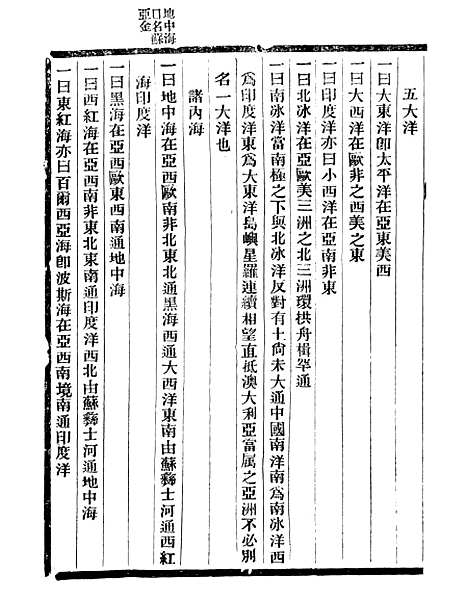 地中海
口名蘇
亞金
五大洋
一曰大東洋卽太平洋在亞東美西
一曰大西洋在歐非之西美之東
一曰印度洋亦曰小西洋在亞南非東
一曰北冰洋在亞歐美三洲之北三洲環拱舟楫罕通
一曰南冰洋當南極之下與北冰洋反對有土尙未大通中國南洋南爲南冰洋西
爲印度洋東爲大東洋島嶼星羅連續相望直抵澳大利亞當屬之亞洲不必別
名一大洋也
諸內海
一曰地中海在亞西歐南非北東北通黑海西通大西洋東南由蘇彝士河通西紅
海印度洋
一曰黑海在亞西歐東西南通地中海
一曰西紅海在亞西南非東北東南通印度洋西北由蘇彝士河通地中海
一曰東紅海亦曰百爾西亞海卽波斯海在亞西南境南通印度洋